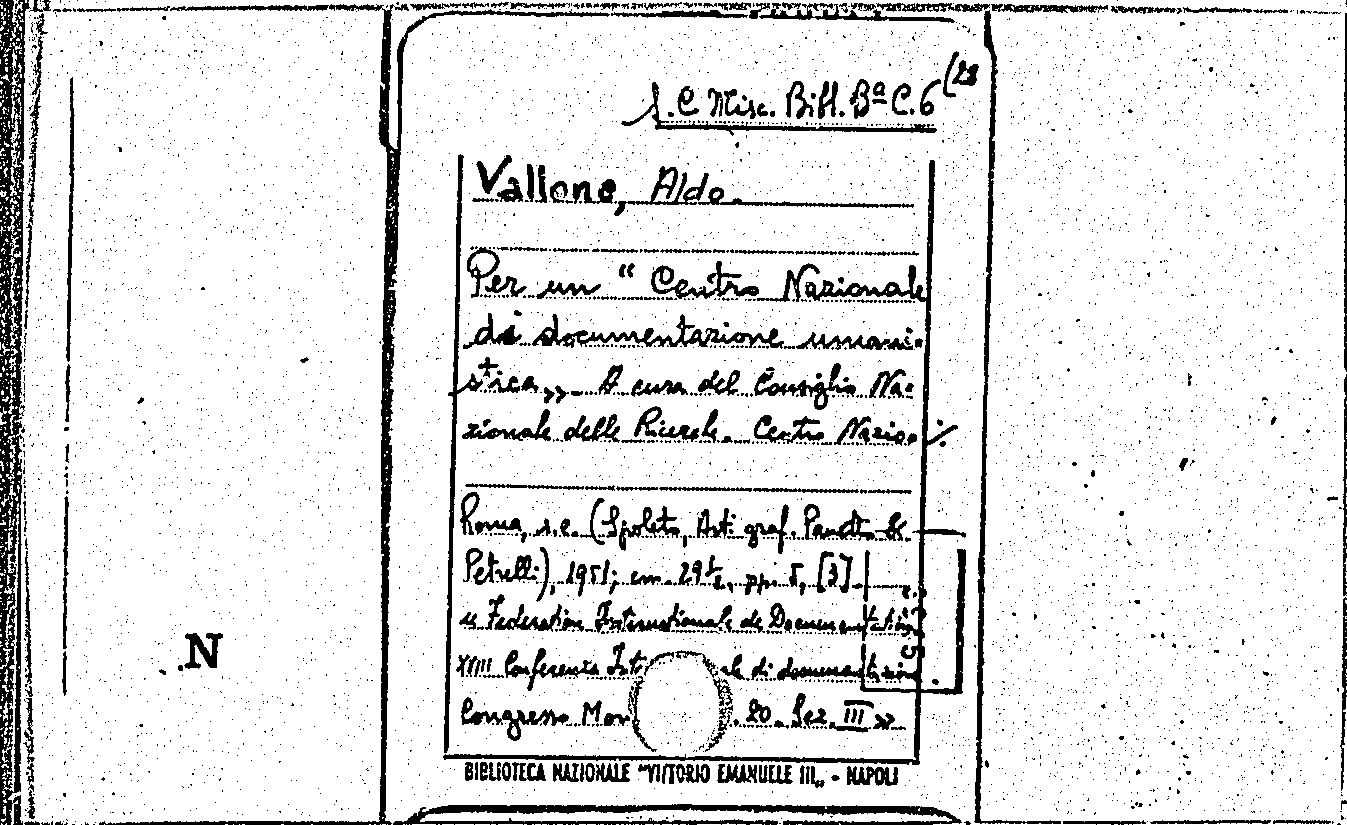 S.C Misc. Bibl. Bª C.6 (28
Vallone, Aldo.
Per un “ Centro Nazionale
di documentazione umani-
stica„ - A cura del Consiglio Na-
zionale delle Ricerche. Centro Nazio- ./.
Roma, s.e. (Spoleto, Arti graf. Panetto &
Petrelli), 1951; cm. 29½, pp. 5, [3].
Federation Internationale de Documentation
XVIII Conferenza di documentazione.
Congresso 20. Sez. III »
N
BIBLIOTECA NAZIONALE "VITTORIO EMANUELE III„ - NAPOLI